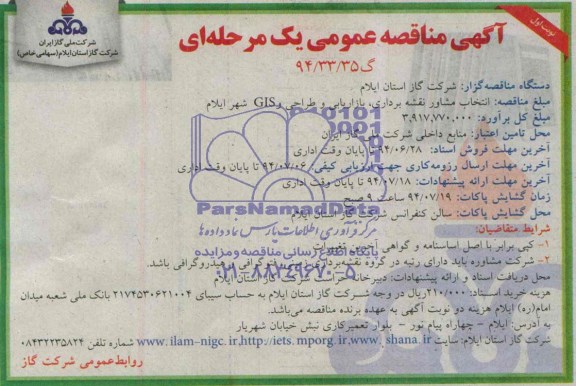 نوبت اول
شرکت ملی گاز ایران
شرکت گاز استان ایلام (سهامی خاص)
آگهی مناقصه عمومی یک مرحله‌ای
گ ۹۴/۳۳/۳۵
دستگاه مناقصه‌گزار: شرکت گاز استان ایلام
مبلغ مناقصه: انتخاب مشاور نقشه برداری، بازاریابی و طراحی و GIS شهر ایلام
مبلغ کل برآورد: ۳,۹۱۷,۷۷۰,۰۰۰
محل تامین اعتبار: منابع داخلی شرکت ملی گاز ایران
آخرین مهلت فروش اسناد: ۹۴/۰۶/۲۸ تا پایان وقت اداری
آخرین مهلت ارسال رزومه‌کاری جهت ارزیابی کیفی: ۹۴/۰۷/۰۶ تا پایان وقت اداری
آخرین مهلت ارائه پیشنهادات: ۹۴/۰۷/۱۸ تا پایان وقت اداری
زمان گشایش پاکات: ۹۴/۰۷/۱۹ ساعت ۹ صبح
محل گشایش پاکات: سالن کنفرانس شرکت گاز استان ایلام
شرایط متقاضیان:
۱- کپی برابر با اصل اساسنامه و گواهی آخرین تغییرات
۲- شرکت مشاوره باید دارای رتبه در گروه نقشه‌برداری و هیدروگرافی باشد.
محل دریافت اسناد و ارائه پیشنهادات: دبیرخانه حراست شرکت گاز استان ایلام
هزینه خرید اسناد: ۲۱۰/۰۰۰ریال در وجه شرکت گاز استان ایلام به حساب سیبای ۲۱۷۴۵۳۰۶۲۱۰۰۴ بانک ملی شعبه میدان
امام(ره) ایلام هزینه دو نوبت آگهی به عهده برنده مناقصه می‌باشد.
به آدرس: ایلام - چهاراه پیام نور - بلوار تعمیرکاری نبش خیابان شهریار
شرکت گاز استان ایلام: سایت www.ilam-nigc.ir,http://iets.mporg.ir,www.shana.ir شماره تلفن ۰۸۴۳۲۲۳۵۸۲۴
روابط عمومی شرکت گاز
ParsNamadData
مرکز فرآوری اطلاعات پارس نماد داده ها
پایگاه اطلاع رسانی مناقصه و مزایده
۰۲۱-۸۸۳۴۹۶۷۰-۵